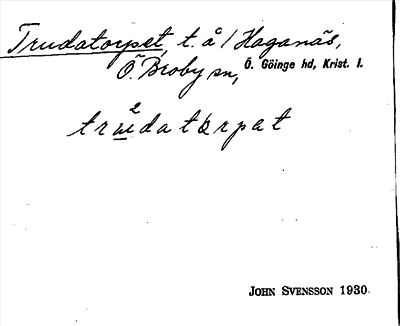 Trudatorpet, t. å / Haganäs,
Ö. Broby sn, Ö. Göinge hd, Krist. l.
2
trudatorpat
JOHN SVENSSON 1930.